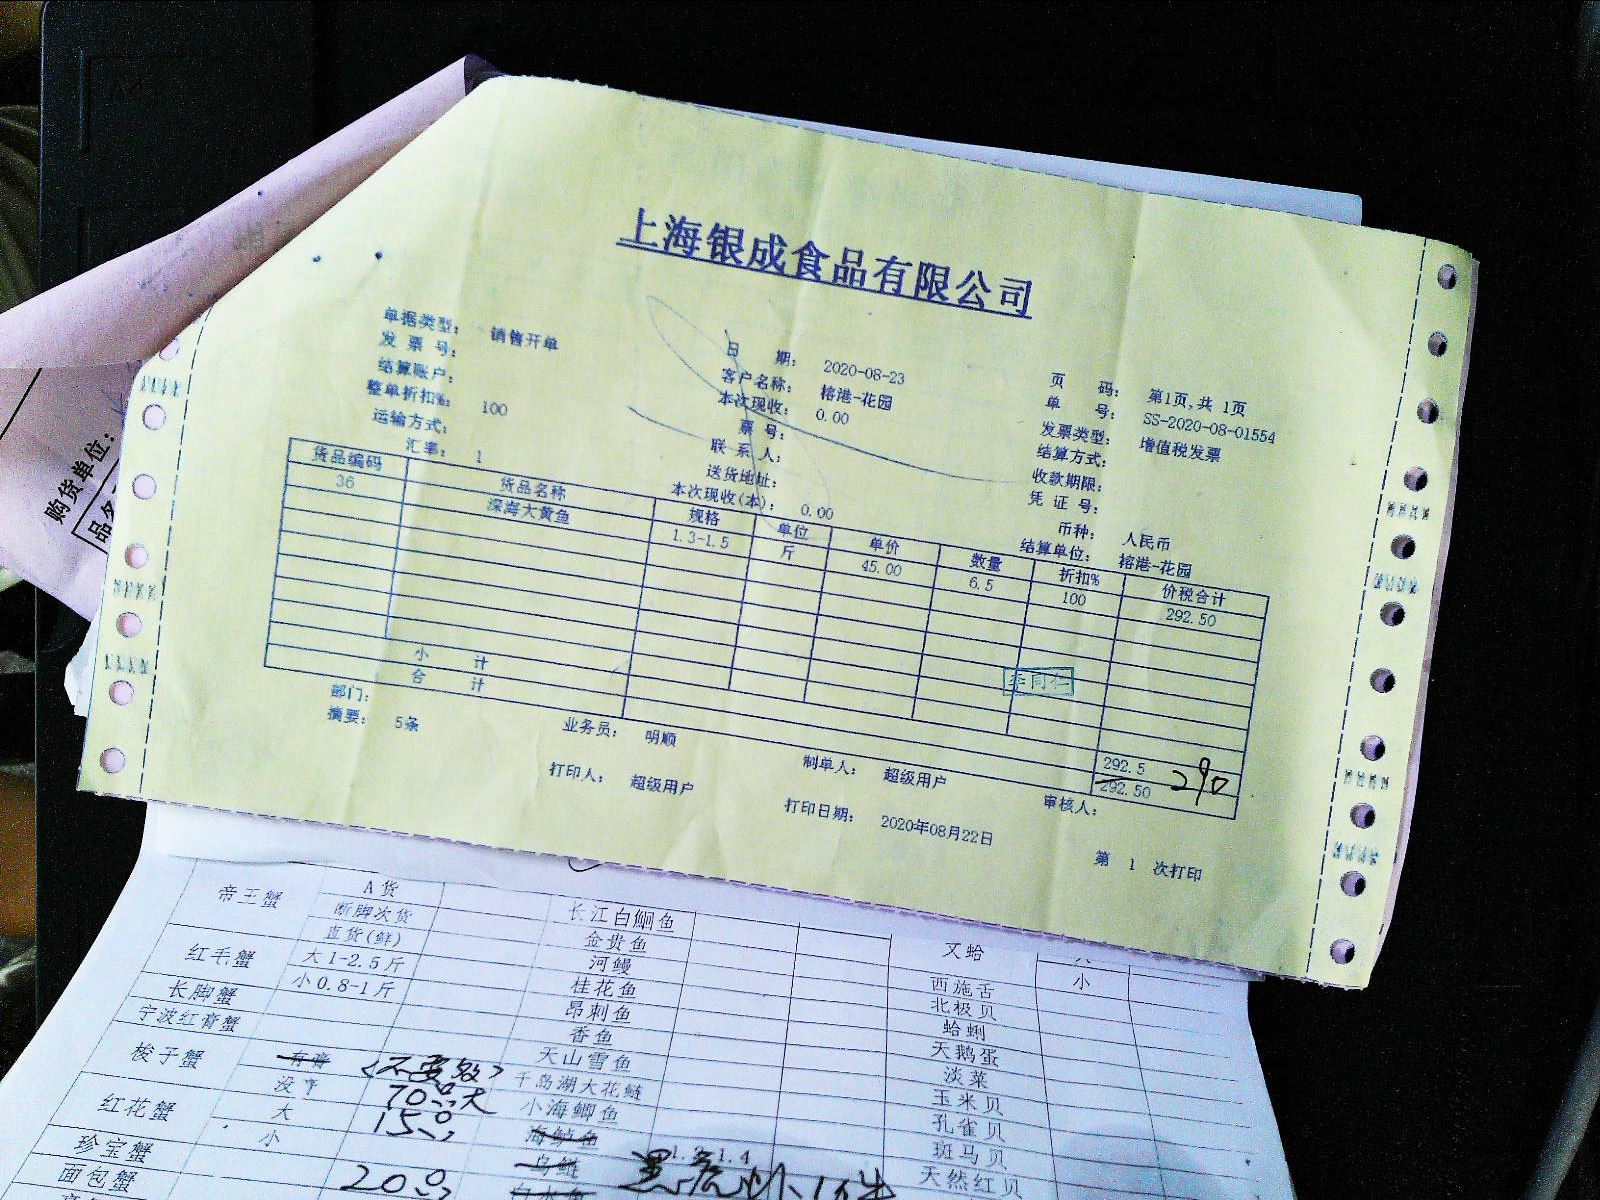 上海银成食品有限公司
单据类型： 销售开单 日 期： 2020-08-23 页 码： 第1页,共 1页
发 票 号： 客户名称： 榕港-花园 单 号： SS-2020-08-01554
结算账户： 本次现收： 0.00 发票类型： 增值税发票
整单折扣%： 100 票 号： 结算方式：
运输方式： 联 系 人： 收款期限：
汇率： 1 送货地址： 凭 证 号：
本次现收(本)： 0.00 币种： 人民币
结算单位： 榕港-花园
货品编码 货品名称 规格 单位 单价 数量 折扣% 价税合计
36 深海大黄鱼 1.3-1.5 斤 45.00 6.5 100 292.50
小 计 292.5
合 计 292.50 290
部门： 业务员： 明顺 制单人： 超级用户 审核人：
摘要： 5条 打印人： 超级用户 打印日期： 2020年08月22日 第 1 次打印
购货单位：
品名
帝王蟹 A货
断脚次货 长江白鮰鱼
直货(鲜) 金贵鱼 又蛤
红毛蟹 大1-2.5斤 河鳗 西施舌 小
长脚蟹 小0.8-1斤 桂花鱼 北极贝
宁波红膏蟹 昂刺鱼 蛤蜊
香鱼 天鹅蛋
梭子蟹 有膏 天山雪鱼 淡菜
没 千岛湖大花鲢 玉米贝
红花蟹 大 小海鲫鱼 孔雀贝
小 海鲈鱼 斑马贝
珍宝蟹 乌鲢 1.4 天然红贝
面包蟹